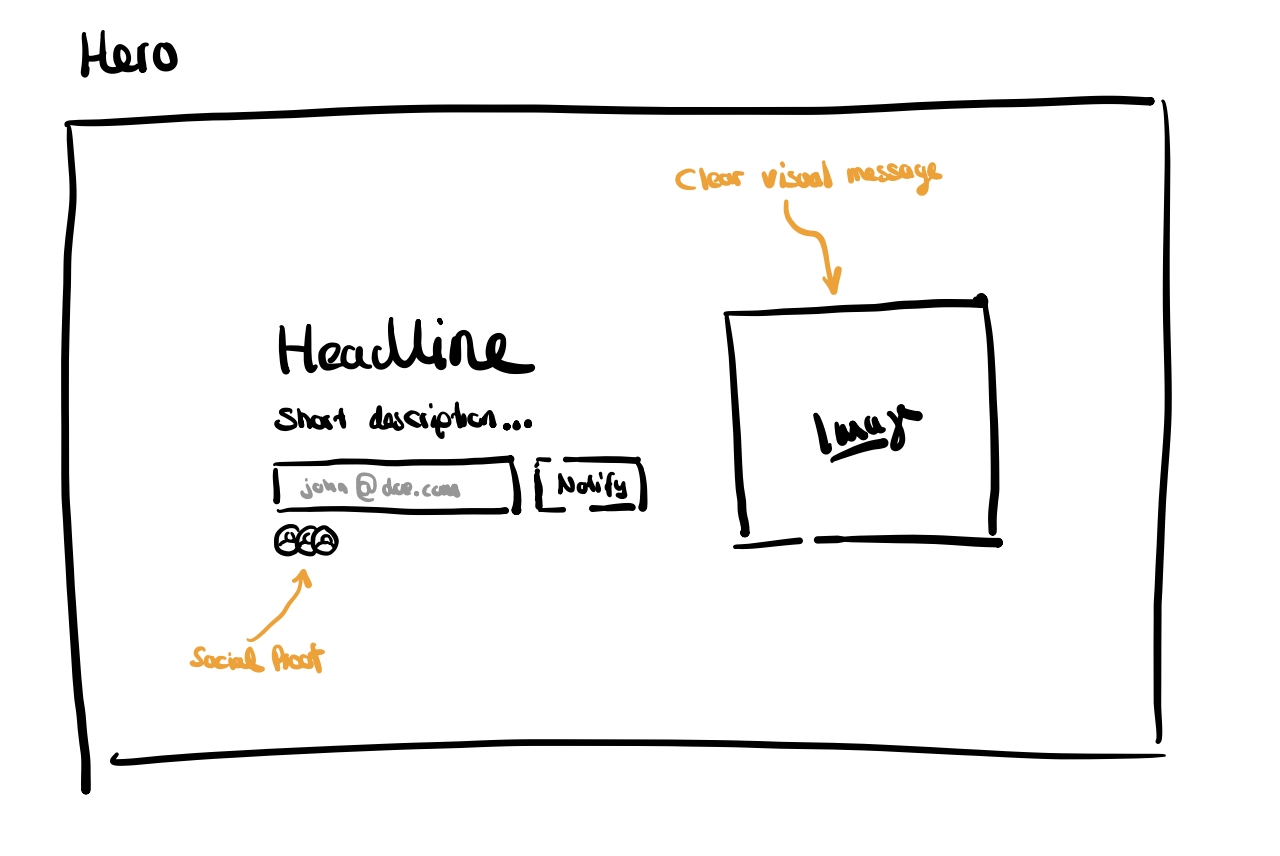 Hero
Clear visual message
Headline
Short description...
Image
john@doe.com
Notify
Social Proof